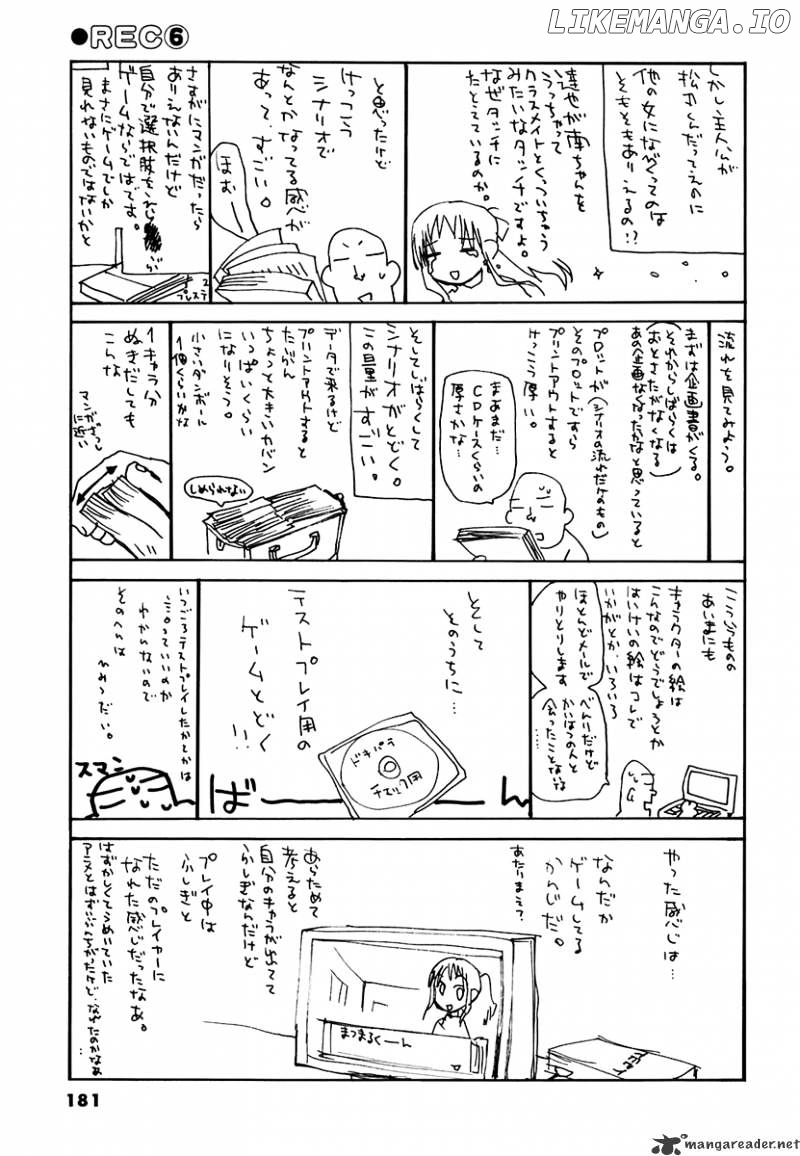 ●REC⑥
LIKEMANGA.IO
しかし主人公が
松丸くんだってえのに
他の女になべくってのは
そもそもありえるの!?
達也が南ちゃんを
うっちゃって
クラスメイトとくっついちゃう
みたいなタッチですよ。
なぜタッチに
たとえているのか。
と思ったけど
けっこう
シナリオで
なんとかなってる感じが
あって、すごい。
ほむ
さすがにマンガだったら
ありえないんだけど
ゲームならではです。
自分で選択肢を
まさにゲームでしか
見れないものではないかと
プレステ
2
流れを見てみよう。
まずは企画書がくる。
(それからしばらくは
おとさたがなくなる)
あの企画なくなったかなと思っていると
プロットが(シナリオの流れだけのもの)
そのプロットですら
プリントアウトすると
けっこう厚い。
まあまだ…
CDケースくらいの
厚さかな…
そしてしばらくして
シナリオがとどく。
この量がすごい。
データで来るけど
プリントアウトすると
たぶん
ちょっと大きいカバン
いっぱいくらい
になりそう。
小さいダンボール
1個くらいかな
しめられない
1キャラ分
ぬきだしても
こんな
マンガざっし
に近い
こうゆうものの
あいまにも
キャラクターの絵は
こんなのでどうでしょうとか
はいけいの絵はコレで
いかがとか、いろいろ
ほとんどメールで
やりとりします
べんりだけど
かいはつの人と
会ったことないな
…
そして
そのうちに…
テストプレイ用の
ゲームとどく
!!
ドキパラ
チェック用
ばーーん
いつごろテストプレイしたかとかは
言っていいのか
わかんないので
そのへんは
ひみつだい。
スマン
やった感じは…
なんだか
ゲームしてる
かんじだ。
あたりまえ?
あらためて
考えると
自分のキャラが出てて
ふしぎなんだけど
プレイ中は
ふしぎと
ただのプレイヤーに
なれた感じだったなあ。
はずかしくてうめいていた
アニメとはずいぶんちがたけど、なれたのかなぁ…
まつまるくーん
181
mangareader.net